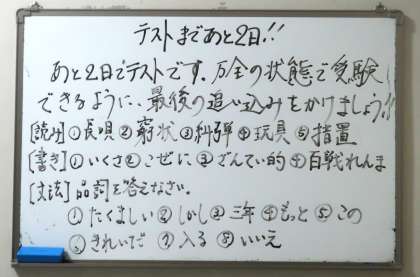 テストまであと2日!!
あと2日でテストです。万全の状態で受験
できるように、最後の追い込みをかけましょう!!
[読み]①長唄②窮状③糾弾④玩具⑤措置
[書き]①いくさ②こぜに③ざんてい的④百戦れんま
[文法]品詞を答えなさい。
①たくましい②しかし③三年④もっと⑤この
⑥きれいだ⑦入る⑧いいえ